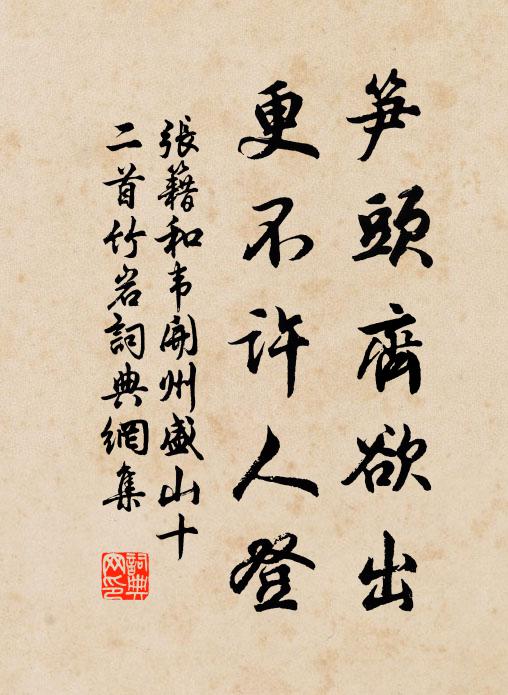 笋頭齊欲出
更不許人登
張籍和韦開州盛山十
二首竹岩詞典網集
詞典网印